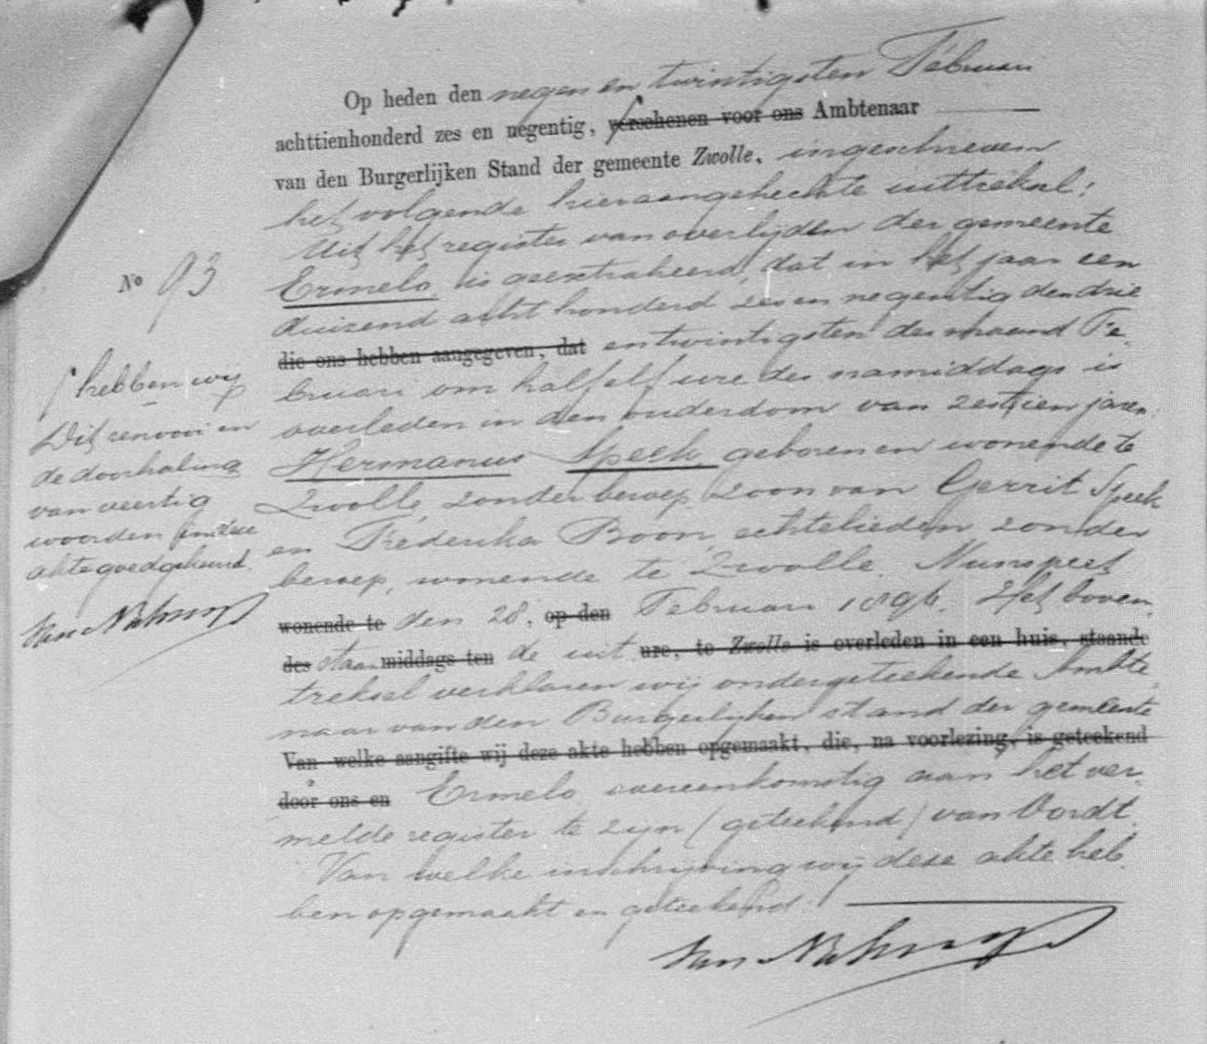 Op heden den negen en twintigsten Februari
achttienhonderd zes en negentig, verschenen voor ons Ambtenaar
van den Burgerlijken Stand der gemeente Zwolle, ingeschreven
het volgende hieraangehechte uittreksel:
Uit het register van overlijden der gemeente
No 93
Ermelo is geextraheerd, dat in het jaar een
duizend acht honderd zes en negentig den drie
die ons hebben aangegeven, dat en twintigsten der maand Fe
bruari om half elf ure des namiddags is
overleden in den ouderdom van zestien jaren
Hermanus Speek, geboren en wonende te
Zwolle, zonder beroep, zoon van Gerrit Speek
en Frederika Boon, echtelieden, zonder
beroep, wonende te Zwolle. Nunspeet
wonende te den 28. op den Februari 1896. Het boven
des staan middags ten de uit ure, te Zwolle is overleden in een huis, staande
treksel verklaren wij ondergeteekende Ambte
naar van den Burgerlijken stand der gemeente
Van welke aangifte wij deze akte hebben opgemaakt, die, na voorlezing, is geteekend
door ons en Ermelo overeenkomstig aan het ver
melde register te zijn (geteekend) van Oordt.
Van welke inschrijving wij deze akte heb
ben opgemaakt en geteekend.
hebben wij
Dit renvooi en
de doorhaling
van veertig
woorden in deze
akte goedgekeurd.